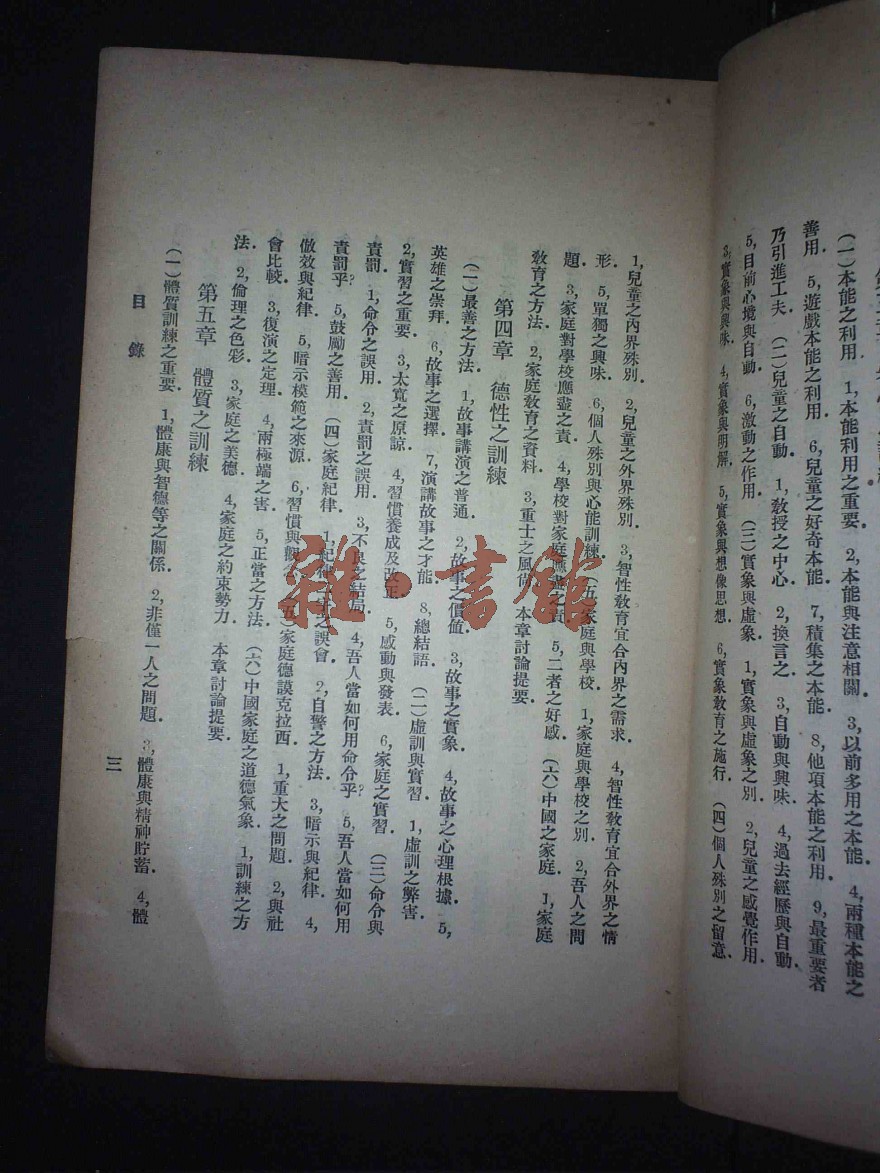 (一)本能之利用 1,本能利用之重要 2,本能與注意相關 3,以前多用之本能 4,兩種本能之
善用 5,遊戲本能之利用 6,兒童之好奇本能 7,積集之本能 8,他項本能之利用 9,最重要者
乃引進工夫 (二)兒童之自動 1,敎授之中心 2,換言之 3,自動與興味 4,過去經歷與自動
5,目前心境與自動 6,激動之作用 (三)實象與虛象 1,實象與虛象之別 2,兒童之感覺作用
3,實象與興味 4,實象與明解 5,實象與想像思想 6,實象敎育之施行 (四)個人殊別之留意
1,兒童之內界殊別 2,兒童之外界殊別 3,智性敎育宜合內界之需求 4,智性敎育宜合外界之情
形 5,單獨之興味 6,個人殊別與心能訓練 (五)家庭與學校 1,家庭與學校之別 2,吾人之問
題 3,家庭對學校應盡之責 4,學校對家庭應盡之責 5,二者之好感 (六)中國之家庭 1,家庭
敎育之方法 2,家庭敎育之資料 3,重士之風尙 本章討論提要
第四章 德性之訓練
(一)最善之方法 1,故事講演之普通 2,故事之價値 3,故事之實象 4,故事之心理根據 5,
英雄之崇拜 6,故事之選擇 7,演講故事之才能 8,總結語 (二)虛訓與實習 1,虛訓之弊害
2,實習之重要 3,太寬之原諒 4,習慣養成及改正 5,感動與發表 6,家庭之實習 (三)命令與
責罰 1,命令之誤用 2,責罰之誤用 3,不良之結局 4,吾人當如何用命令乎? 5,吾人當如何用
責罰乎? 5,鼓勵之善用 (四)家庭紀律 1,紀律之誤會 2,自警之方法 3,暗示與紀律 4,
倣效與紀律 5,暗示模範之來源 6,習慣與 (五)家庭德謨克拉西 1,重大之問題 2,與社
會比較 3,復演之定理 4,兩極端之害 5,正當之方法 (六)中國家庭之道德氣象 1,訓練之方
法 2,倫理之色彩 3,家庭之美德 4,家庭之約束勢力 本章討論提要
第五章 體質之訓練
(一)體質訓練之重要 1,體康與智德等之關係 2,非僅一人之問題 3,體康與精神貯蓄 4,體
目錄
三
雜·書館